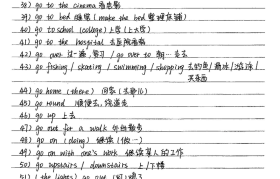 38) go to the cinema 看电影
39) go to bed 睡觉 (make the bed 整理床铺)
40) go to school (college) 上学 (上大学)
41) go to the hospital 去医院看病
42) go over 过一遍, 复习 / go over to 朝…去
43) go fishing / skating / swimming / shopping 去钓鱼/滑冰/游泳/
买东西
44) go home (there) 回家 (去那儿)
45) go round 顺便去, 绕道去
46) go up 上去
47) go out for a walk 外出散步
48) go on (doing) 继续 (做…)
49) go on with one's work 继续某人的工作
50) go upstairs / downstairs 上/下楼
51) (the lights) go out